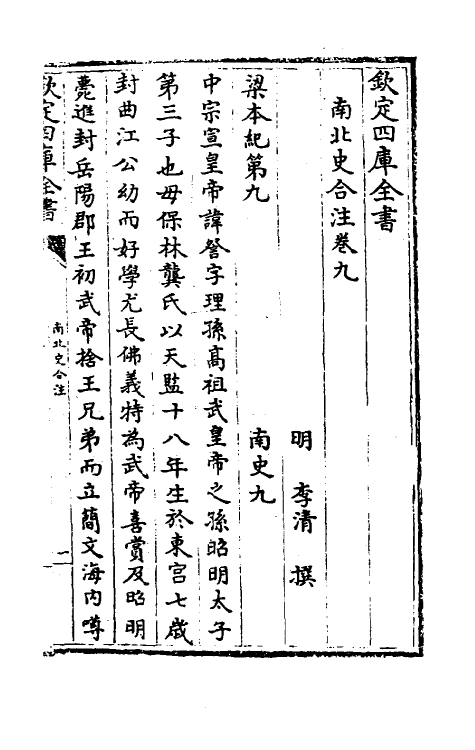 欽定四庫全書
南北史合注卷九
明 李清 撰
梁本紀第九 南史九
中宗宣皇帝諱詧字理孫髙祖武皇帝之孫昭明太子
第三子也母保林龔氏以天監十八年生於東宫七歳
封曲江公幼而好學尤長佛義特為武帝喜賞及昭明
薨進封岳陽郡王初武帝捨王兄弟而立簡文海内噂
欽定四庫全書
南北史合注